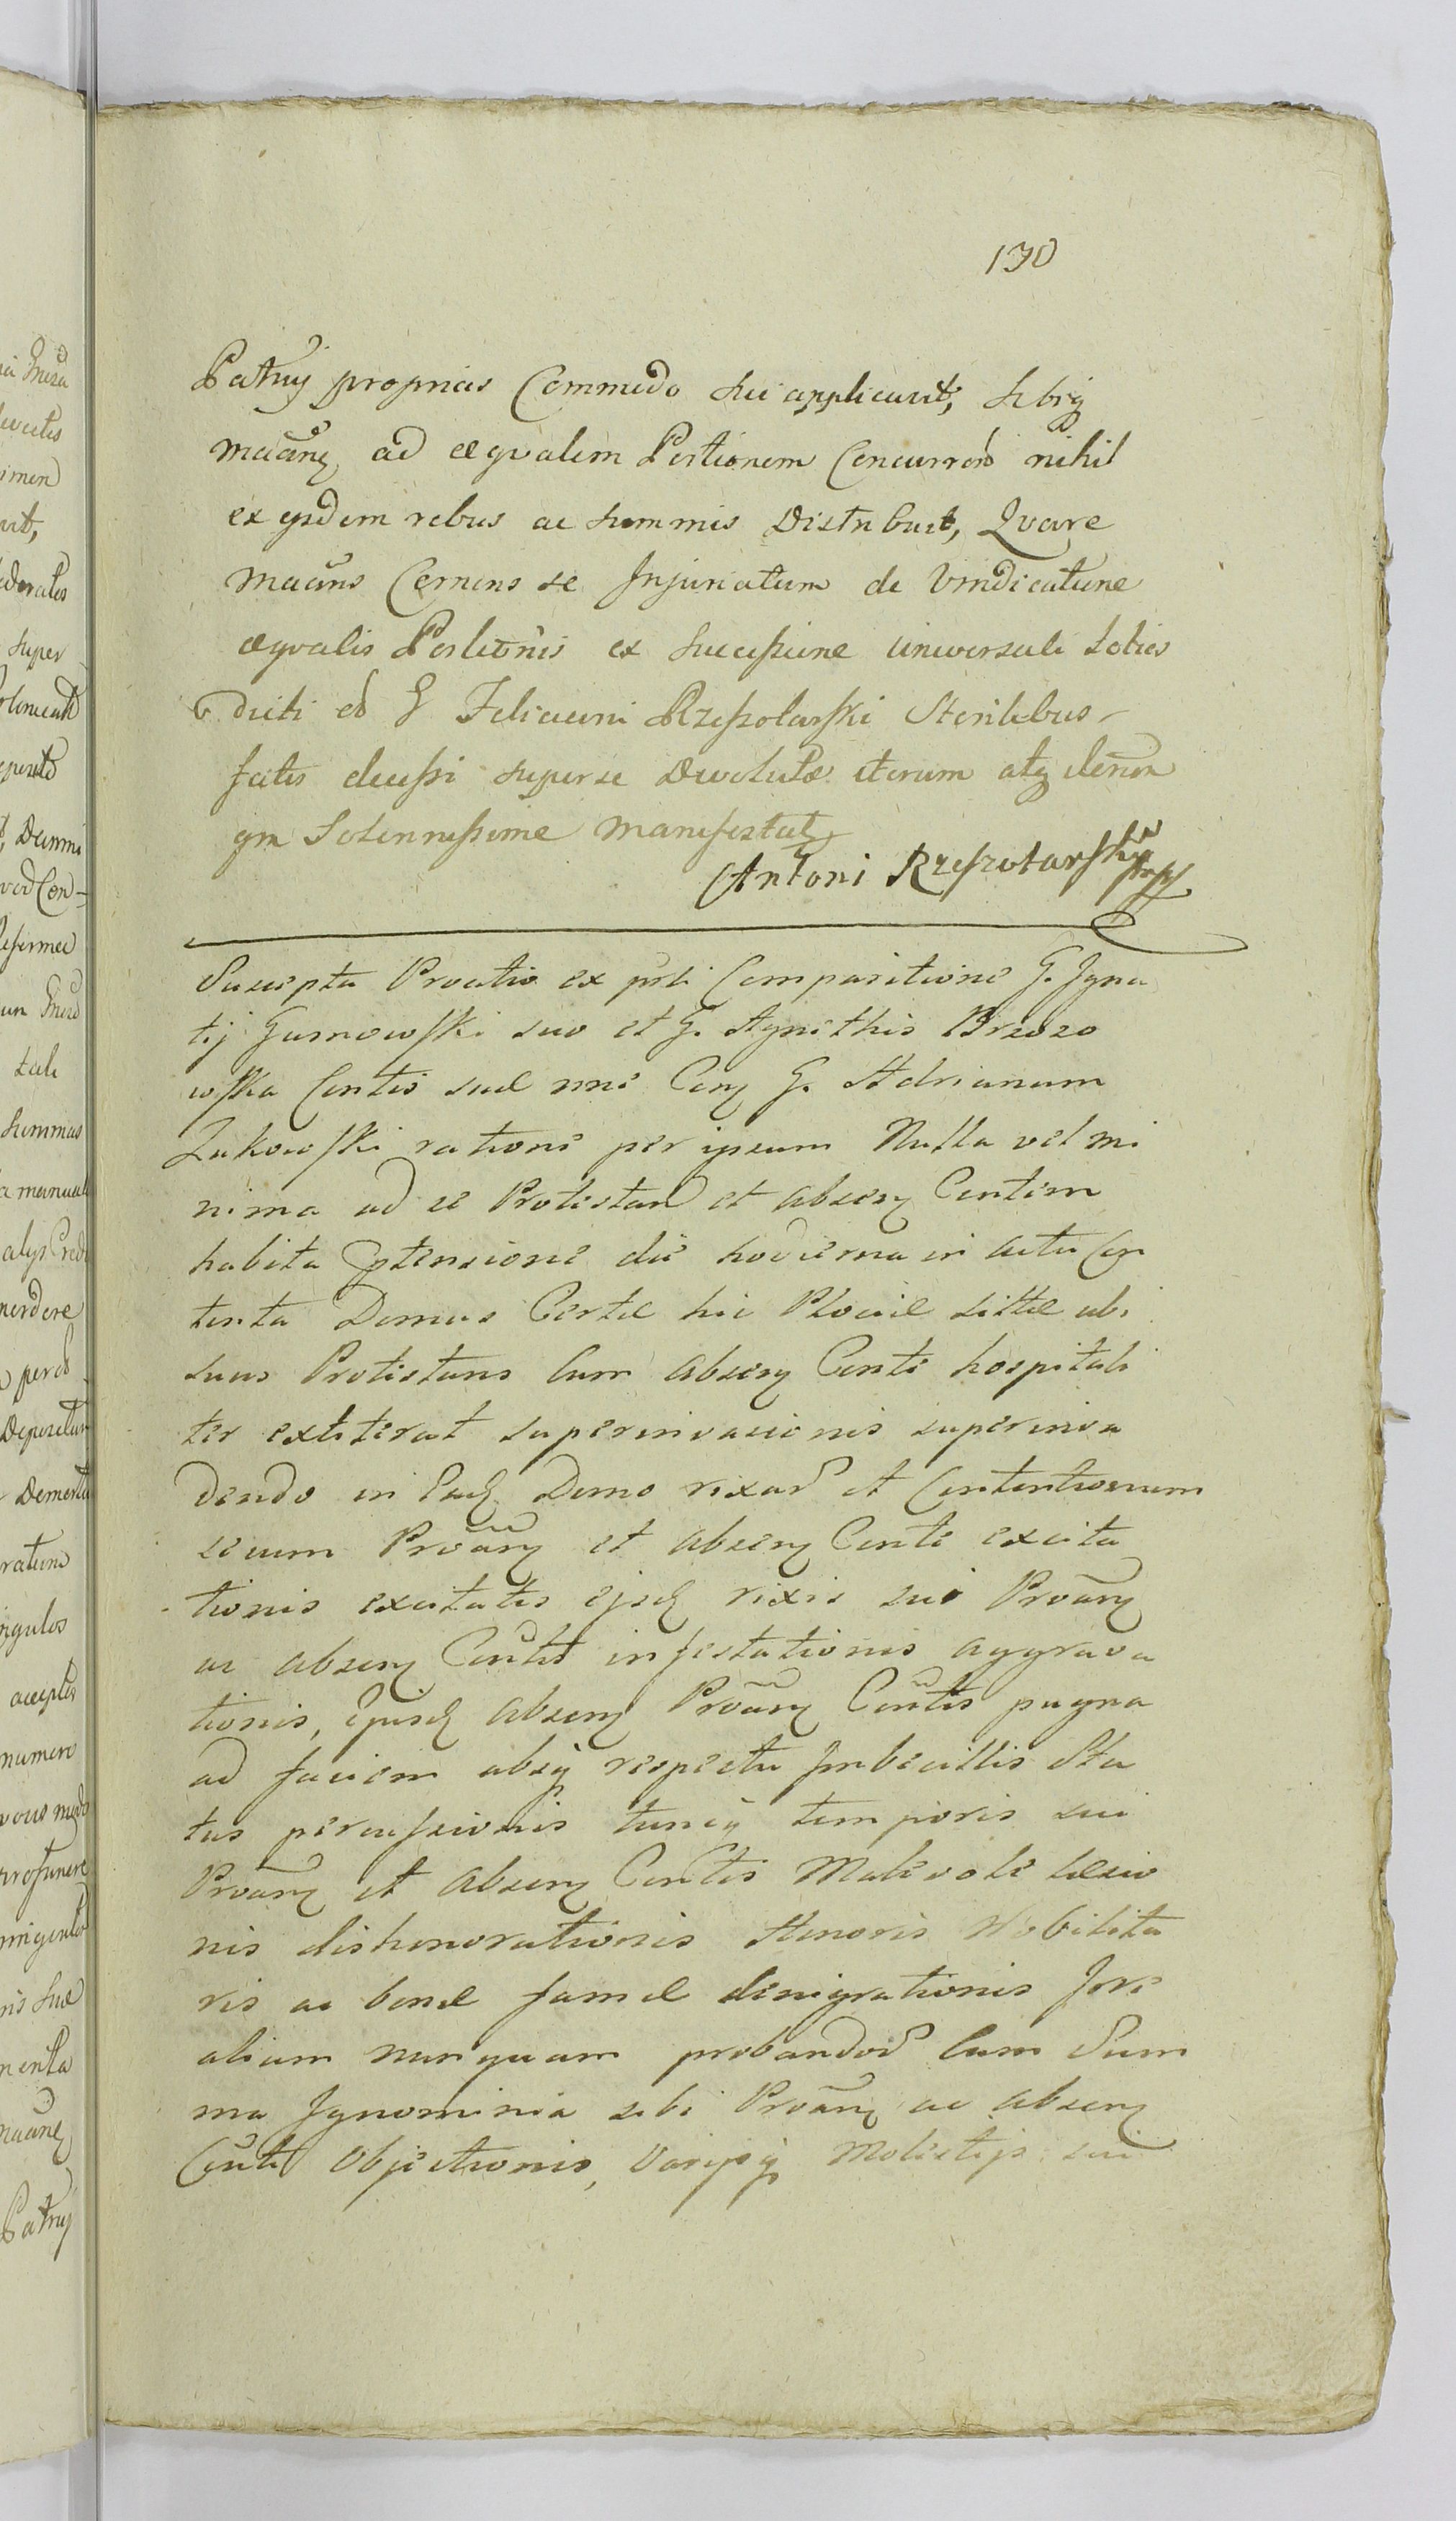 130
Patruj proprias Commodo sui applicavit, sibiq
maãnq ad æqvalem Portionem Concurrend nihil
ex ijsdem rebus ac summis Distribuit, Qvare
maãns Cernens se Injuriatum de Vindicatione
æqvalis Portionis ex Successione universali toties
dicti ol G Feliciani Rzeszotarski Sterilibus
fatis decessi super se Devolutæ iterum atq
qm Solennissime manifestat,
Antoni Rzeszotarski
Suscepta Protatio ex psti Comparitione G. Igna
tij Gumowski suo et G. Agnethis Brzozo
wska Contis suæ nne Conq G. Adrianum
Zukowski ratione per ipsum Nulla vel mi
nima ad se Protestan et absenq Contem
habita ptensione die hodierna in actu Con
tenta Domus Certæ hic Plociæ sittæ ubi
suus Protestans Cum absenq Conte hospitali
ter extiterat superinvasionis superinva
dendo in Eadq Domo rixar et Contentionum
secum Protãnq et absenq Conte excita
tionis excitatis ejsdq rixis sui Protãnq
ac absenq Contis infestationis aggrava
tionis, Ejusdq absenq Protãnq Contis pugna
ad faciem absq respectu Imbecillis Sta
tus percussionis tuncq temporis sui
Protãnq et absenq Contis Malevole læsio
nis dishonorationis Honoris Nobilita
ris ac bonæ famæ denigrationis Jure
alium nunquam probandor Cum Sum
ma Ignominia sibi Protãnq ac absenq
Conti Objectionis, Varijsq Molestijs sui